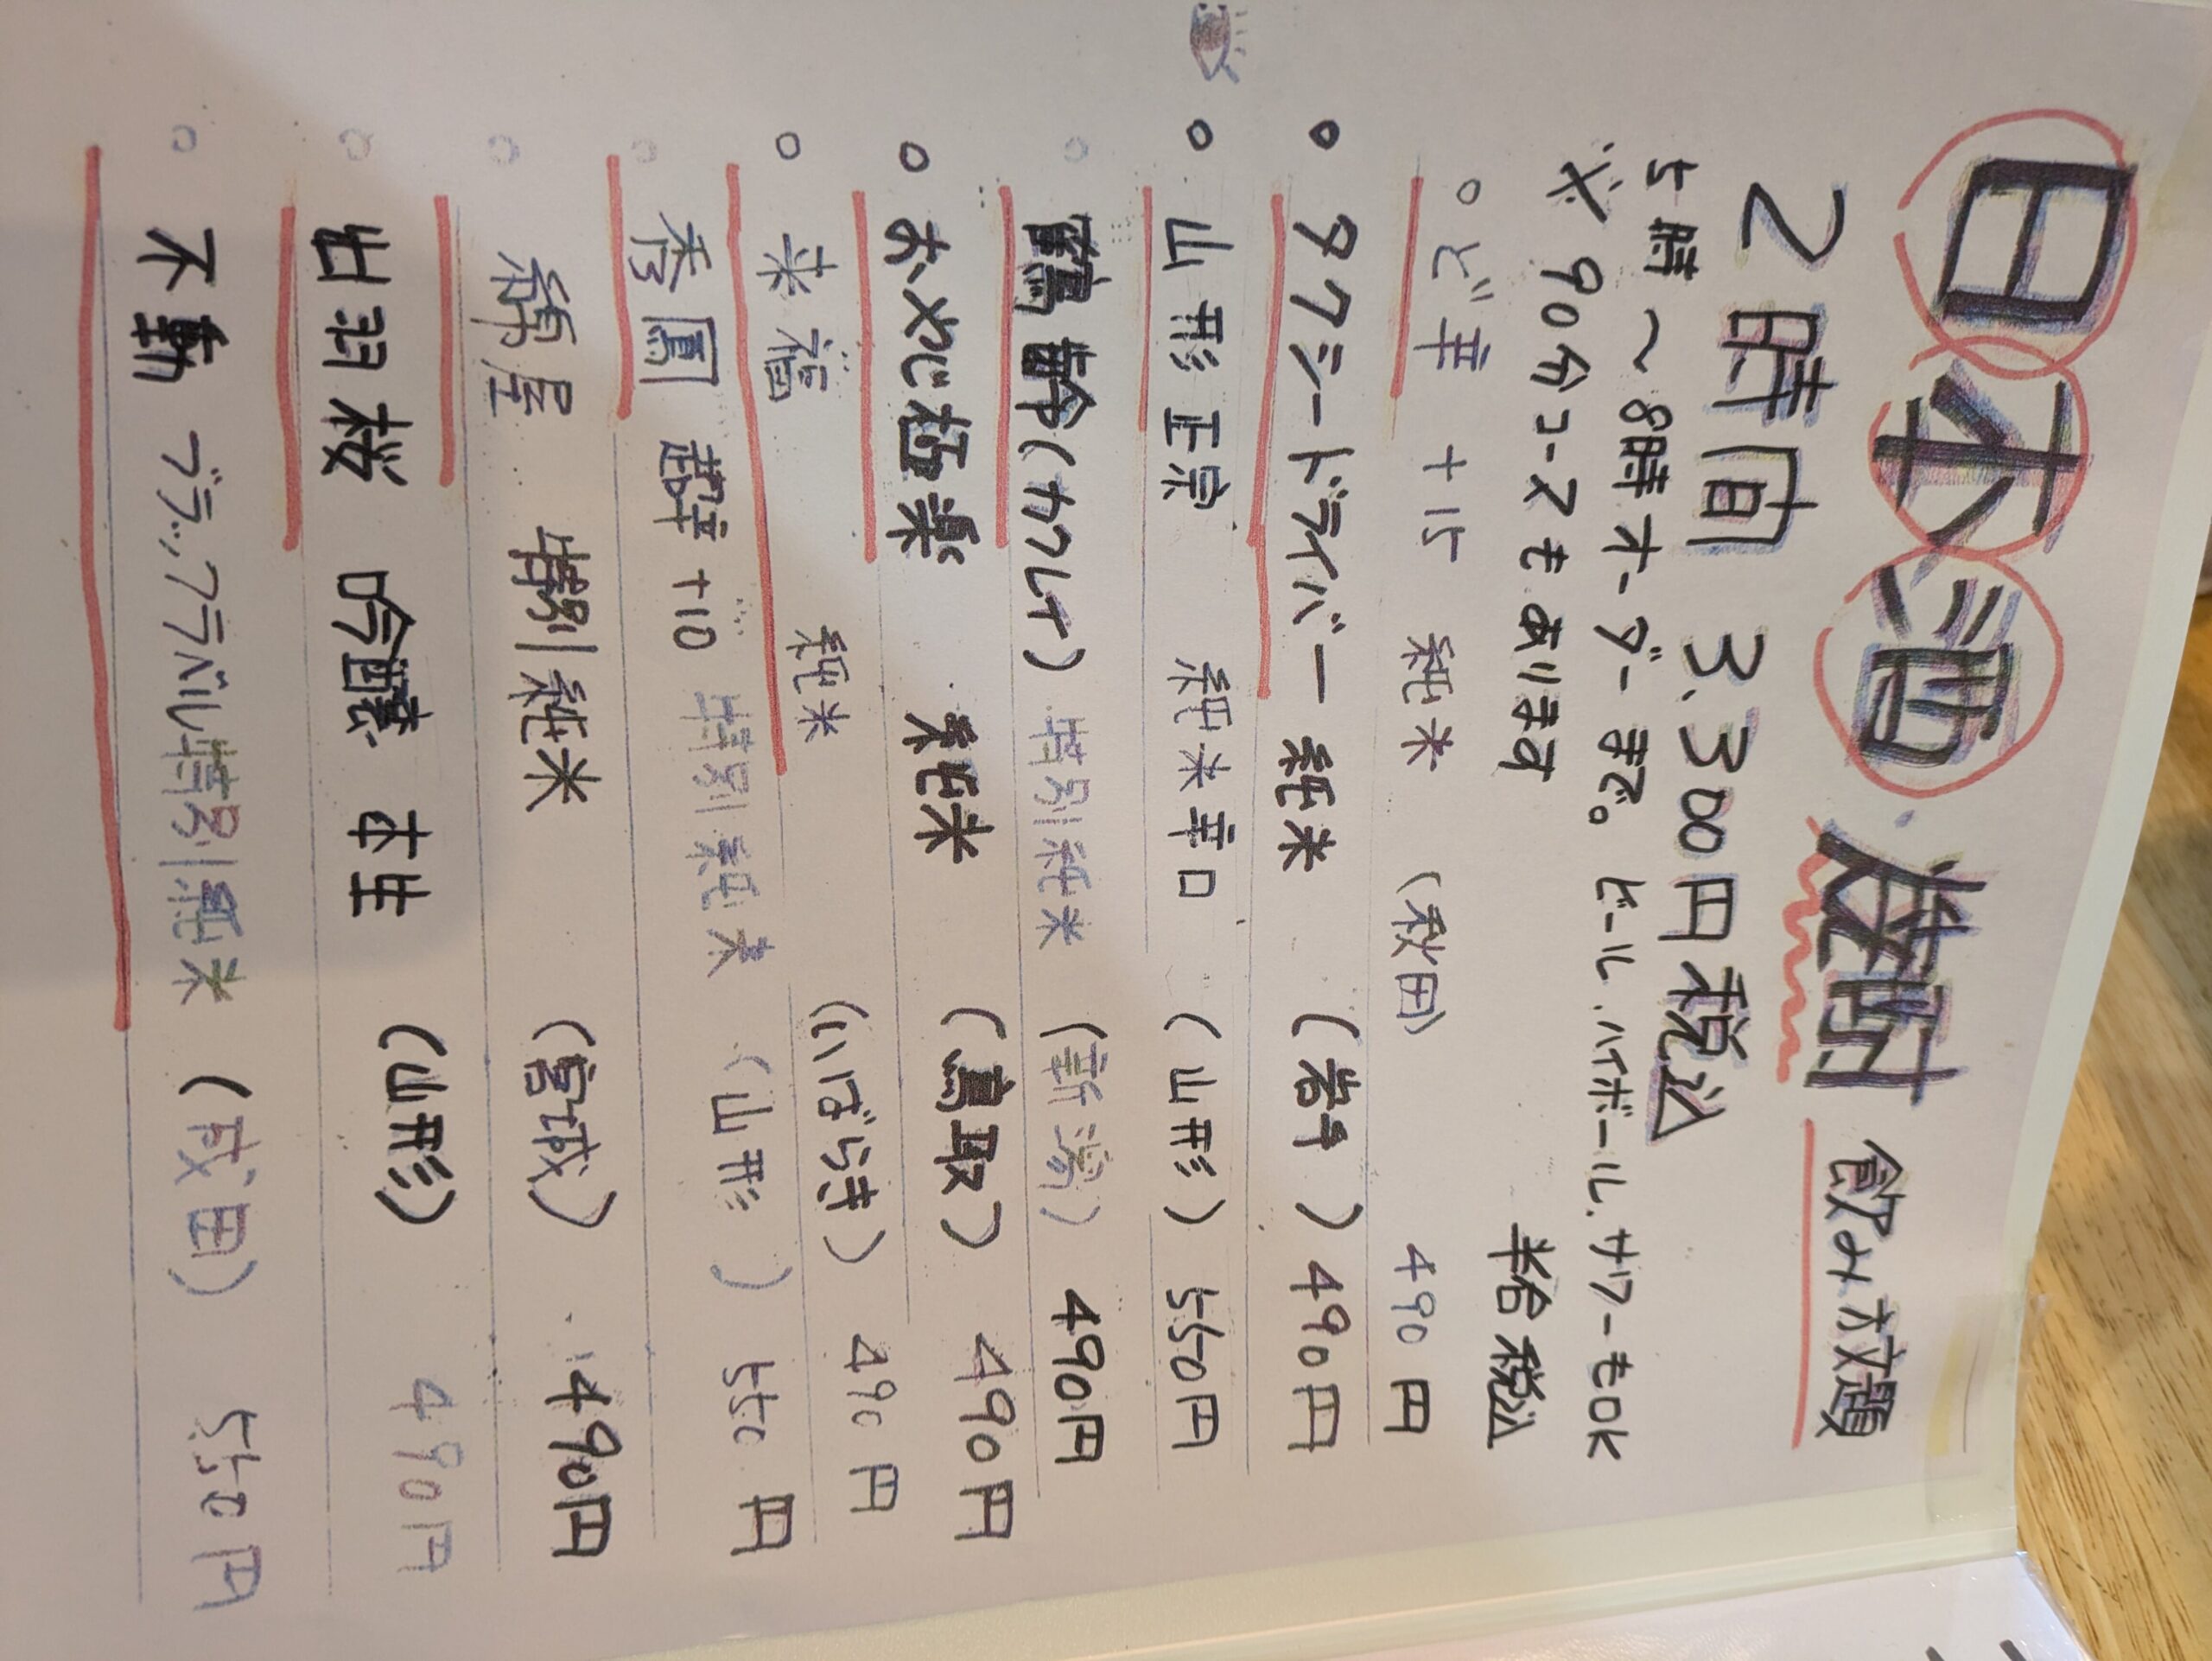 日本酒 飲み放題
2時間 3,300円税込
5時〜8時オーダーまで。ビール、ハイボール、サワーもok
※90分コースもあります
半合 税込
ど辛 +15 純米 (秋田) 490円
タクシードライバー 純米 (岩手) 490円
山形正宗 純米辛口 (山形) 550円
鶴齢(カクレイ) 特別純米 (新潟) 490円
おやじ極楽 純米 (鳥取) 490円
来福 純米 (いばらき) 490円
秀鳳 超辛+10 特別純米 (山形) 550円
綿屋 特別純米 (宮城) 490円
出羽桜 吟醸 本生 (山形) 490円
不動 ブラックラベル特別純米 550円